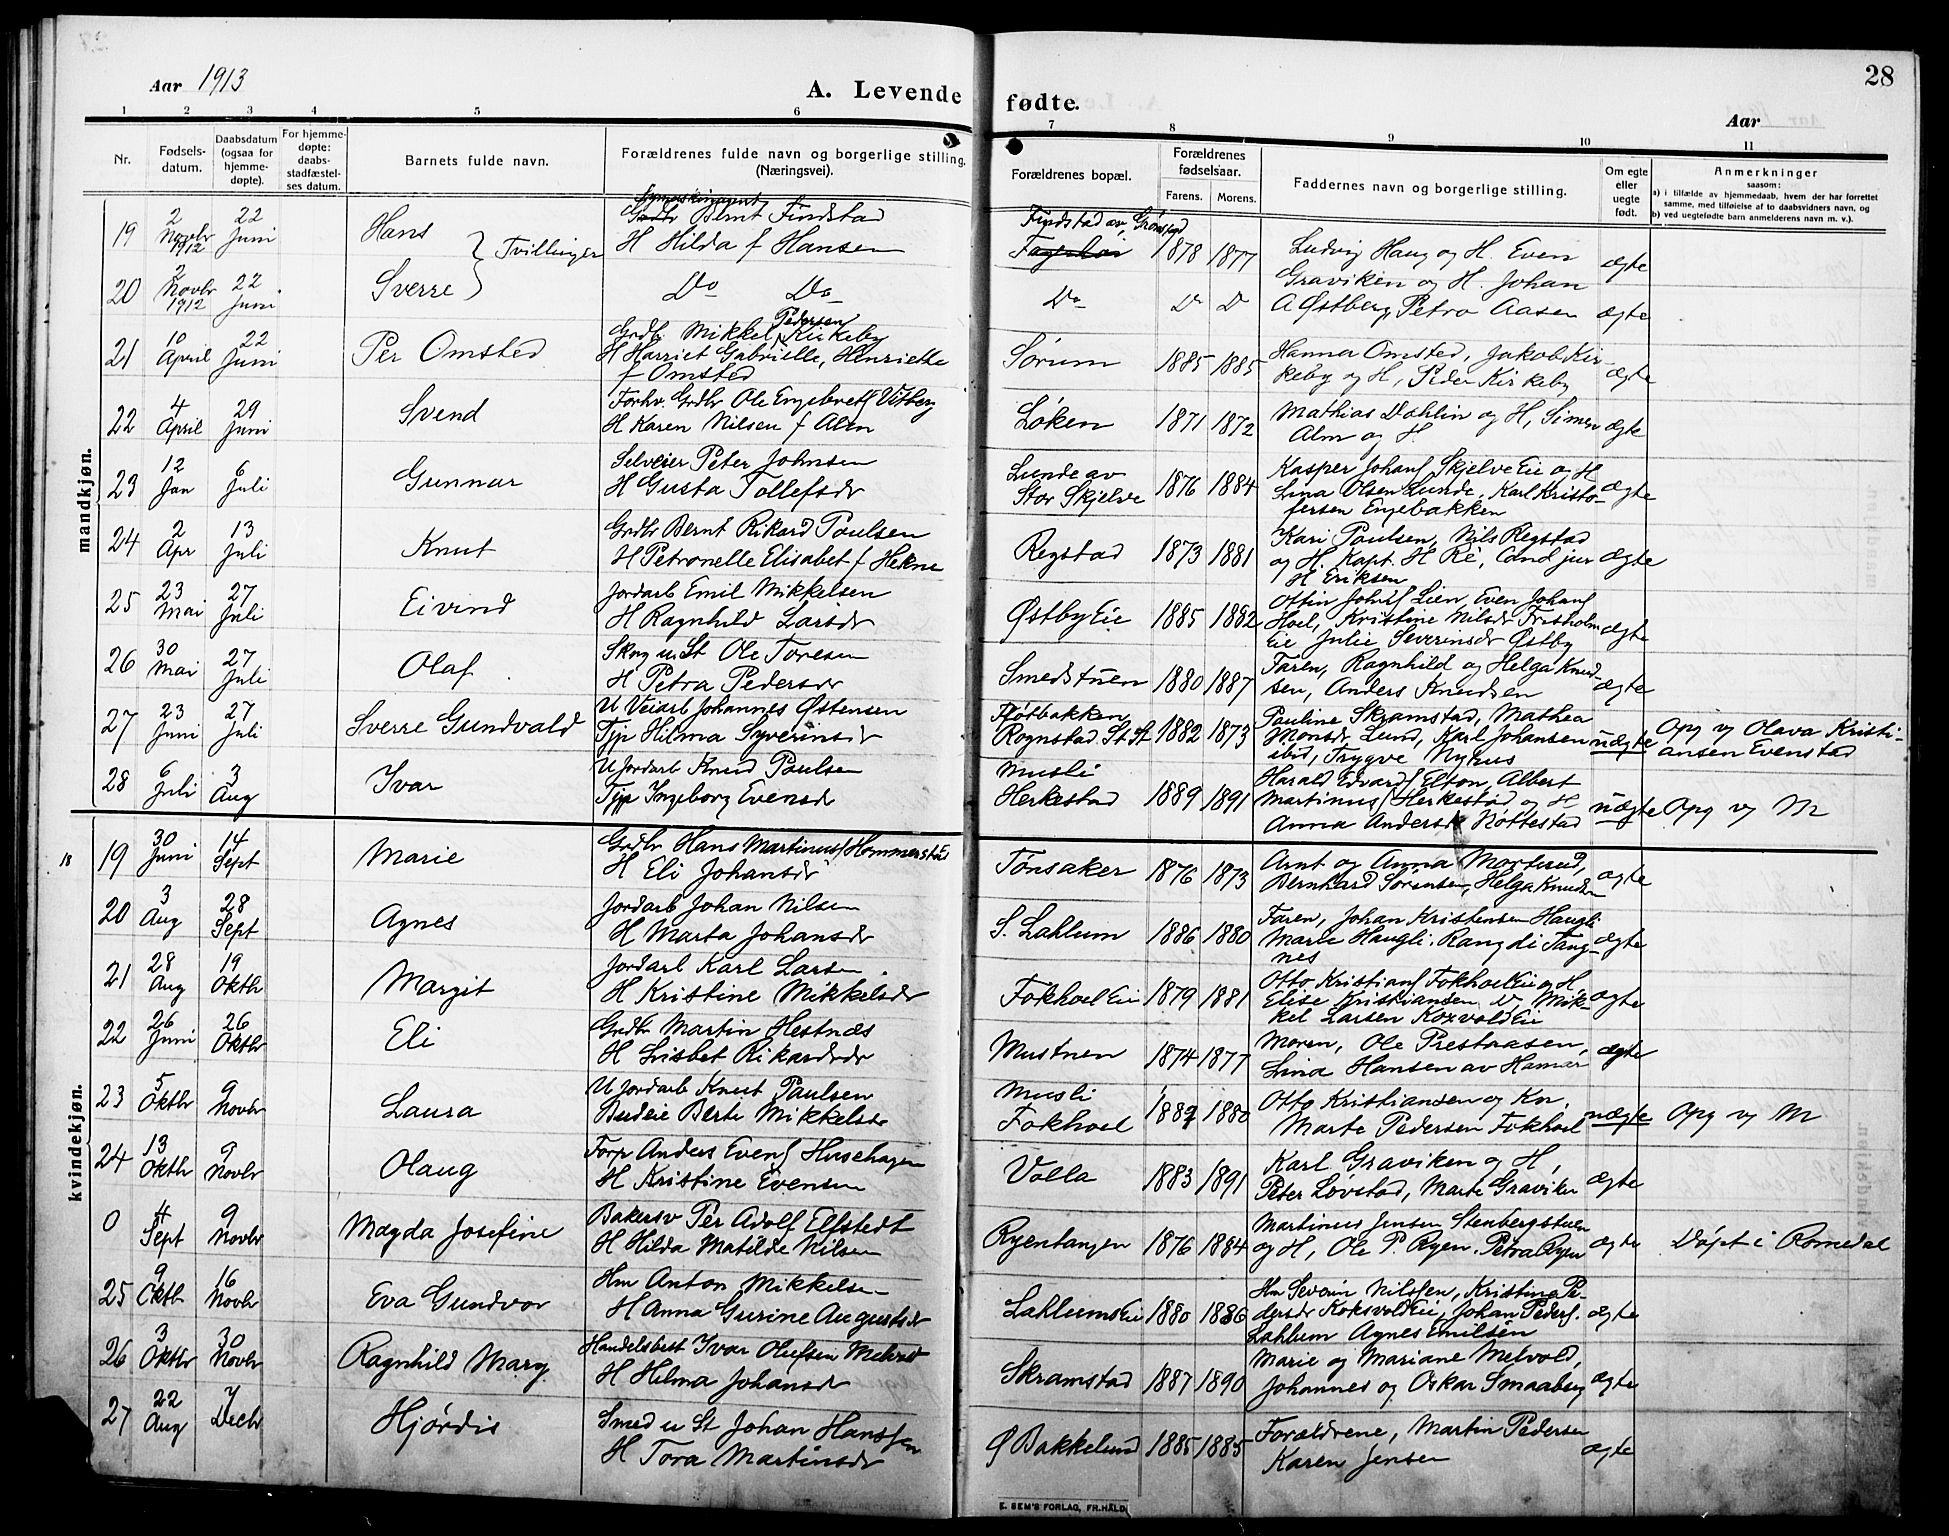 28
Aar 1913
A. Levende fødte.
Aar
1 2 3 4 5 6 7 8 9 10 11
Nr.
Fødsels-
datum.
Daabsdatum
(ogsaa for
hjemme-
døpte).
For hjemme-
døpte:
daabs-
stadfæstel-
ses datum.
Barnets fulde navn.
Forældrenes fulde navn og borgerlige stilling.
(Næringsvei).
Forældrenes bopæl.
Forældrenes
fødselsaar.
Farens. Morens.
Faddernes navn og borgerlige stilling.
Om egte
eller
uegte
født.
Anmerkninger
saasom:
a) i tilfælde av hjemmedaab, hvem der har forrettet
samme, med tilføielse af to daabsvidners navn, og
b) ved uegtefødte barn anmelderens navn m. v.).
mandkjøn.
19 2 Novbr 1912 22 Juni Hans } Tvillinger
Grdbr Bernt Findstad
H Hilda f Hansen
Findstad av Grønstad
1878 1877
Ludvig Haug og H. Even
Graviken og H. Johan
ægte
20 2 Novbr 1912 22 Juni Sverre
Do Do
Do Do D
A Østberg, Petra Aasen ægte
21 10 April 22 Juni Per Omsted
Grdbr Mikkel Pedersen Kirkeby
H Harriet Gabrielle, Henriette
f Omsted
Sørum 1885 1885
Hanna Omsted, Jakob Kir-
keby og H, Peder Kirkeby
ægte
22 4 April 29 Juni Svend
Forhv. Grdbr Ole Engebrets Vitberg
H Karen Nilsen f Alm
Løken 1871 1872
Mathias Dahlin og H, Simen
Alm og H
ægte
23 12 Jan 6 Juli Gunnar
Selveier Peter Johnsen
H Gusta Tollefsdr
Lunde av
Stor Skjelve 1876 1884
Kasper Johans SkjelveEie og H
Lina Olsen Lunde, Karl Kristo-
fersen Engebakken
ægte
24 2 Apr 13 Juli Knut
Grdbr Bernt Rikard Poulsen
H Petronelle Elisabet f Hekne
Regstad 1873 1881
Kari Paulsen, Nils Regstad
og H. Kapt. H Ré, Cand jur
H Eriksen
ægte
25 23 Mai 27 Juli Eivind
Jordarb Emil Mikkelsen
H Ragnhild Larsdr
Østby Eie 1885 1882
Ottin Johans Lien, Even Johans
Hoel, Kristine Nilsdr Frisholm
Eie Julie Severinsdr Østby
ægte
26 30 Mai 27 Juli Olaf
Skog u St Ole Toresen
H Petra Pedersdr
Smedstuen 1880 1887
Faren, Ragnhild og Helga Knud-
sen, Anders Knudsen
ægte
27 23 Juni 27 Juli Sverre Gundvald
U Veiarb Johannes Østensen
Tjp Hilma Syverinsdr
Fløtbakken
Rognstad St St 1882 1873
Pauline Skramstad, Mathea
Monsdr Lund, Karl Johansen
ibid, Trygve Nyhus
uægte
Opg v Olava Kristi-
ansen Evenstad
28 6 Juli 3 Aug Ivar
U Jordarb Knud Paulsen
Tjp Ingeborg Evensdr
Musli
Herkestad 1889 1891
Harald Edvards Elton, Albert
Martinus Herkestad og H
Anna Andersdr Nøttestad
uægte
Opg v M
kvindekjøn.
18
19 30 Juni 14 Sept Marie
Grdbr Hans Martinus Hommerstad
H Eli Johansdr
Tønsaker 1876 1873
Arnt og Anna Morterud,
Bernhard Sørensen, Helga Knudsen
ægte
20 3 Aug 28 Sept Agnes
Jordarb Johan Nilsen
H Marta Johansdr
S. Lahlum 1886 1880
Faren, Johan Kristensen Haugli
Marie Haugli, Rangdi Tang-
nes
ægte
21 28 Aug 19 Oktbr Margit
Jordarb Karl Larsen
H Kristine Mikkelsdr
Fokhoel Eie 1879 1881
Otto Kristians Fokhoel Eie og H
Elise Kristiansen, Mik-
kel Larsen Koxvold Eie
ægte
22 26 Juni 26 Oktbr Eli
Grdbr Martin Hestnæs
H Lisbet Rikardsdr
Mustuen 1874 1877
Moren, Ole Prestaasen,
Lina Hansen av Hamar
ægte
23 5 Oktbr 9 Novbr Laura
U Jordarb Knut Paulsen
Budeie Berte Mikkelsdr
Musli
Fokhoel 1889 1880
Otto Kristiansen og Kn,
Marte Pedersen Fokhoel
uægte
Opg v M
24 13 Oktbr 9 Novbr Olaug
Forp Anders Evens Husehagen
H Kristine Evensen
Volla 1883 1891
Karl Graviken og H,
Peter Løvstad, Marte Graviken
ægte
0 4 Sept 9 Novbr Magda Josefine
Bakersv Per Adolf Elfstedt
H Hilda Matilde Nilsen
Ryentangen 1876 1884
Martinus Jensen Stenbergstuen
og H, Ole P. Ryen, Petra Ryen
ægte
Døpt i Romedal
25 9 Oktbr 16 Novbr Eva Gundvor
Hm Anton Mikkelsen
H Anna Gurine Augustsdr
Lahlums Eie 1880 1886
Hm Severin Nilssen, Kristine Pe-
dersdr Koksvold Eie, Johan Peders.
Lahlum Agnes Emilsen
ægte
26 3 Oktbr 30 Novbr Ragnhild Mary
Handelsbest Ivar Olufsen Melvold
H Helma Johansdr
Skramstad 1887 1890
Marie og Mariane Melvold,
Johannes og Oskar Smaaberg
ægte
27 22 Aug 7 Decbr Hjørdis
Smed u St Johan Hanssen
H Tora Martinsdr
Ø Bakkelund 1885 1885
Forældrene, Martin Pedersen
Karen Jensen
ægte
E. SEM'S FORLAG, FR.HALD